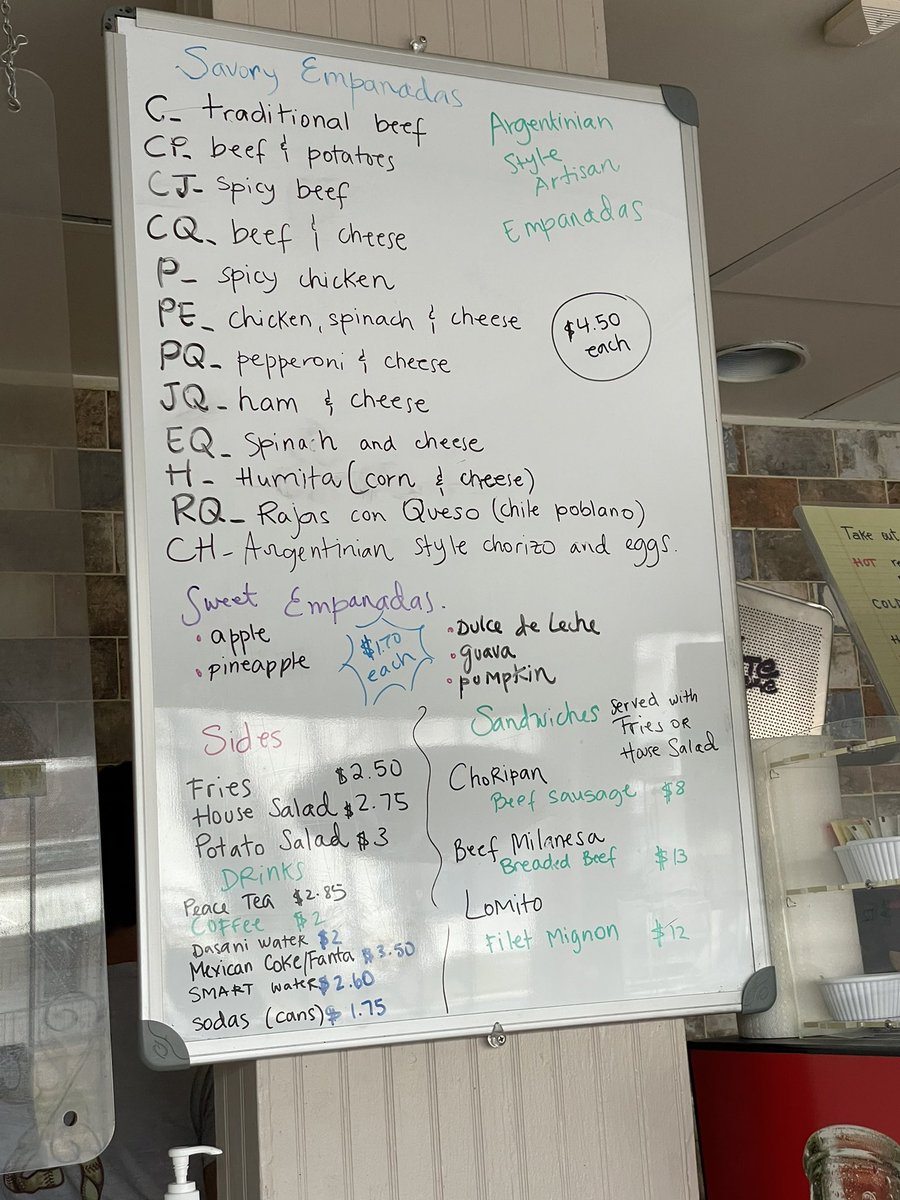 Savory Empanadas
C- traditional beef
CP- beef & potatoes
CJ- spicy beef
CQ- beef & cheese
P- spicy chicken
PE- chicken, spinach & cheese
PQ- pepperoni & cheese
JQ- ham & cheese
EQ- Spinach and cheese
H- Humita (corn & cheese)
RQ- Rajas con Queso (chile poblano)
CH- Argentinian style chorizo and eggs.
Argentinian
Style
Artisan
Empanadas
$4.50
each
Sweet Empanadas.
• apple
• pineapple
$1.70
each
• Dulce de Leche
• guava
• pumpkin
Sides
Fries $2.50
House Salad $2.75
Potato Salad $3
DRINKS
Peace Tea $2.85
Coffee $2
Dasani water $2
Mexican Coke/Fanta $3.50
SMART water $2.60
sodas (cans) $1.75
Sandwiches
Served with
Fries OR
House Salad
ChoRipan
Beef sausage $8
Beef Milanesa
Breaded Beef $13
Lomito
Filet Mignon $12
Take out
HOT
COLD